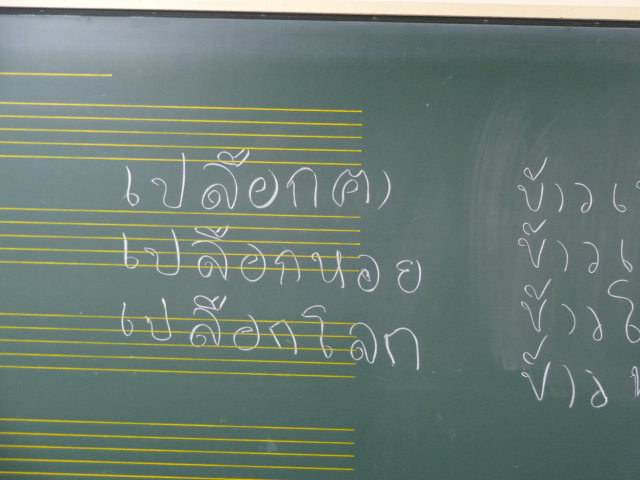 เปลือกตา
เปลือกหอย
เปลือกโลก
ข้าว
ข้าว
ข้าว
ข้าว